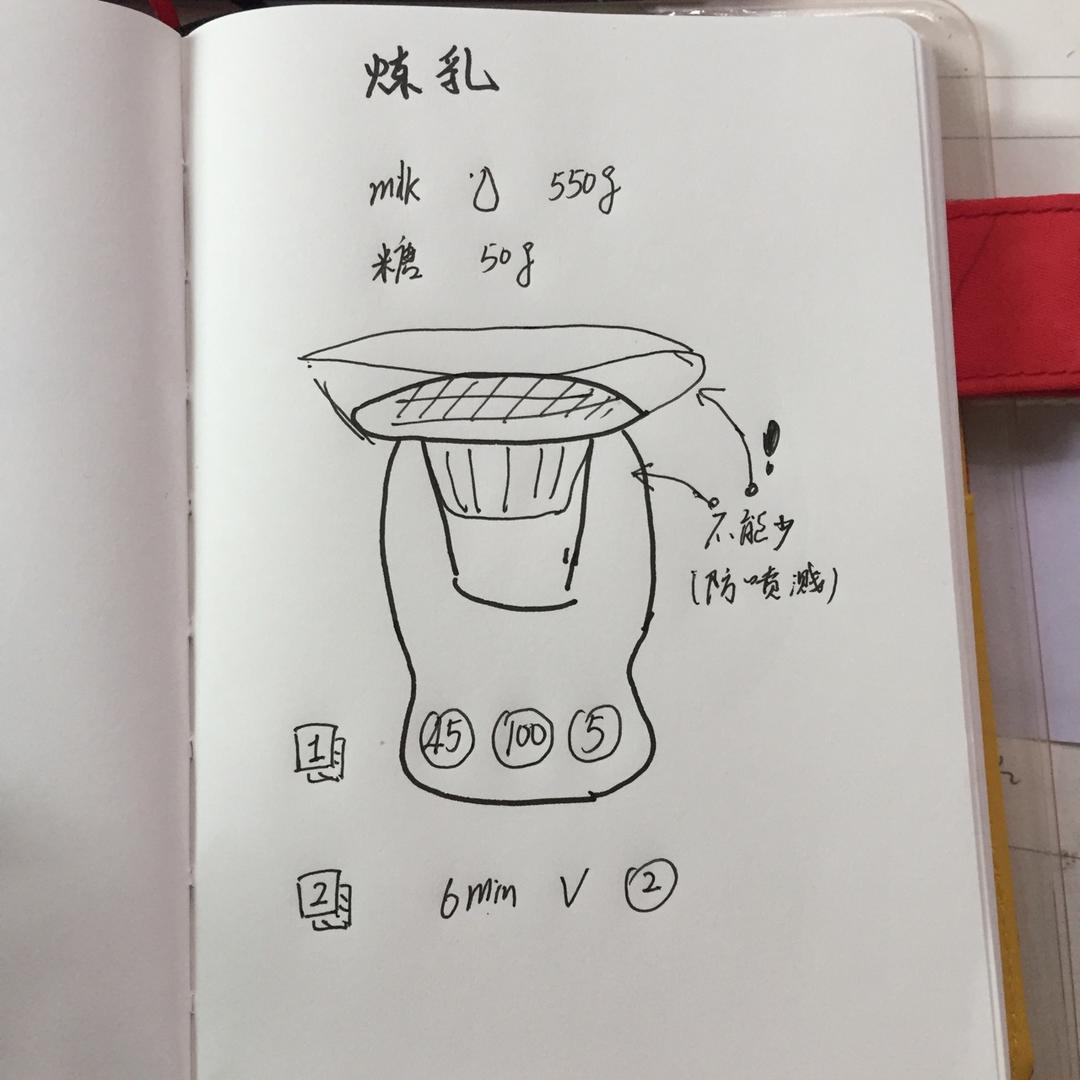 炼乳
milk 550g
糖 50g
!
不能少
(防喷溅)
1 45 100 5
2 6min V 2